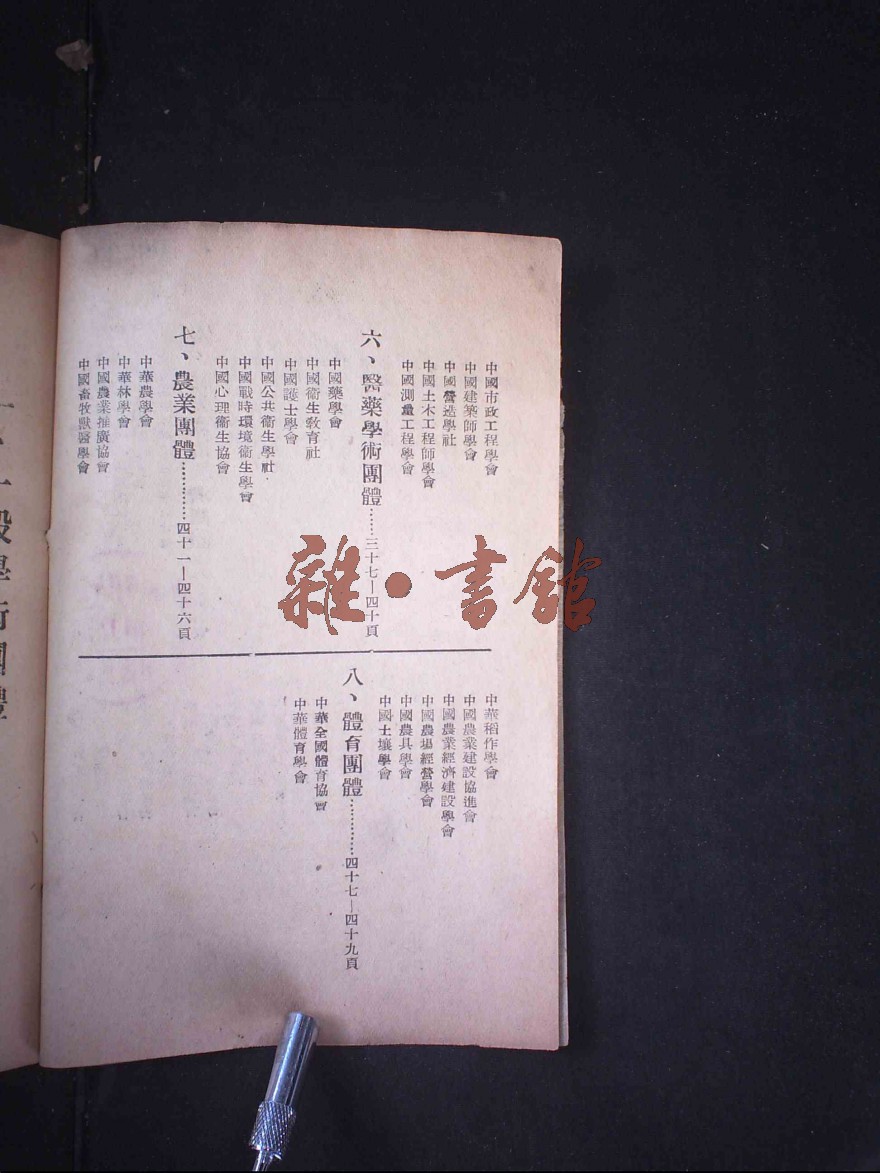 中國市政工程學會
中國建築師學會
中國營造學社
中國土木工程師學會
中國測量工程學會
六、醫藥學術團體……三十七—四十頁
中國藥學會
中國衞生敎育社
中國護士學會
中國公共衞生學社
中國戰時環境衞生學會
中國心理衞生協會
七、農業團體…………四十一—四十六頁
中華農學會
中華林學會
中國農業推廣協會
中國畜牧獸醫學會
中華稻作學會
中國農業建設協進會
中國農業經濟建設學會
中國農場經營學會
中國農具學會
中國土壤學會
八、體育團體…………四十七—四十九頁
中華全國體育協會
中華體育學會
雜·書館
一般學術團體